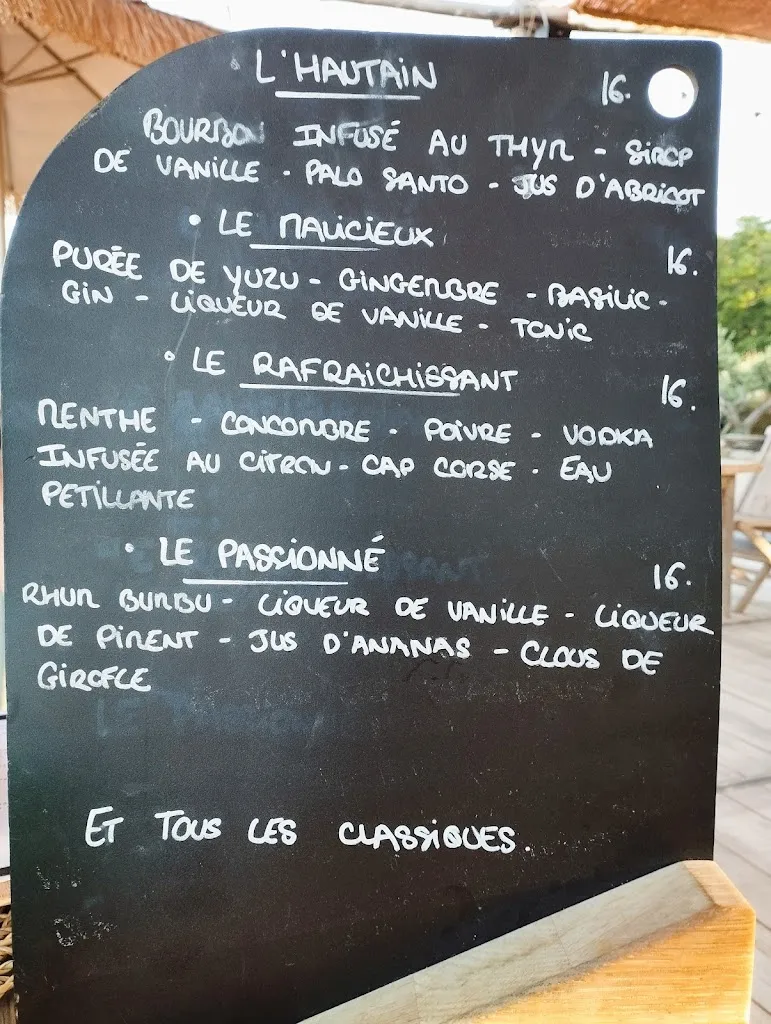 L'HAUTAIN 16.
BOURBON INFUSÉ AU THYM - SIROP
DE VANILLE - PALO SANTO - JUS D'ABRICOT
• LE MALICIEUX 16.
PURÉE DE YUZU - GINGEMBRE - BASILIC -
GIN - LIQUEUR DE VANILLE - TONIC
• LE RAFRAICHISSANT 16.
MENTHE - CONCOMBRE - POIVRE - VODKA
INFUSÉE AU CITRON - CAP CORSE - EAU
PETILLANTE
• LE PASSIONNÉ 16.
RHUM BUMBU - LIQUEUR DE VANILLE - LIQUEUR
DE PIMENT - JUS D'ANANAS - CLOUS DE
GIROFLE
ET TOUS LES CLASSIQUES.